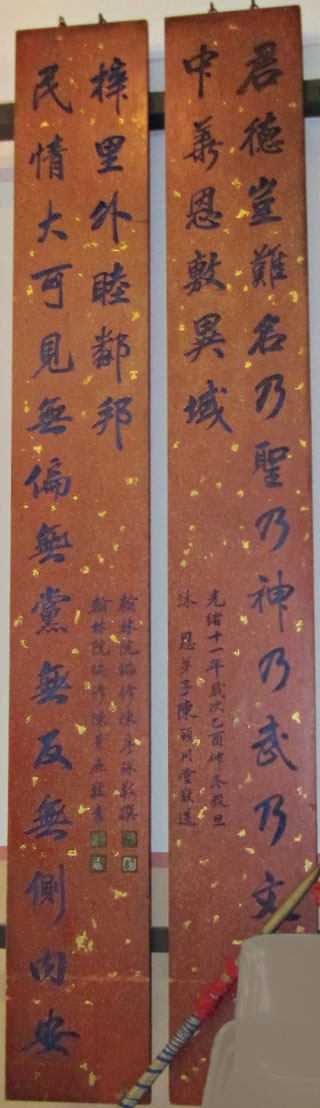 君德豈難名乃聖乃神乃武乃
中華恩敷異域
光緒十一年歲次乙酉仲冬穀旦
沐恩弟子陳穎川堂敬送
梓里外睦鄰邦
民情大可見無偏無黨無反無側內安
翰林院編修陳序球敬撰
翰林院編修陳敬書